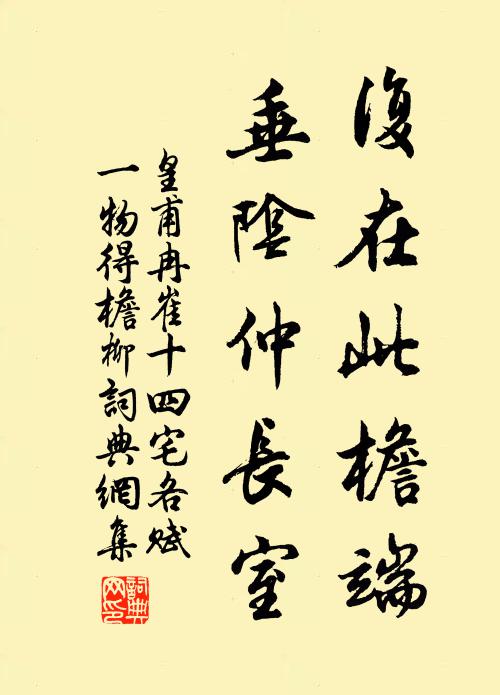 復在此檐端
垂陰仲長室
皇甫冉崔十四宅各賦
一物得檐柳詞典網集